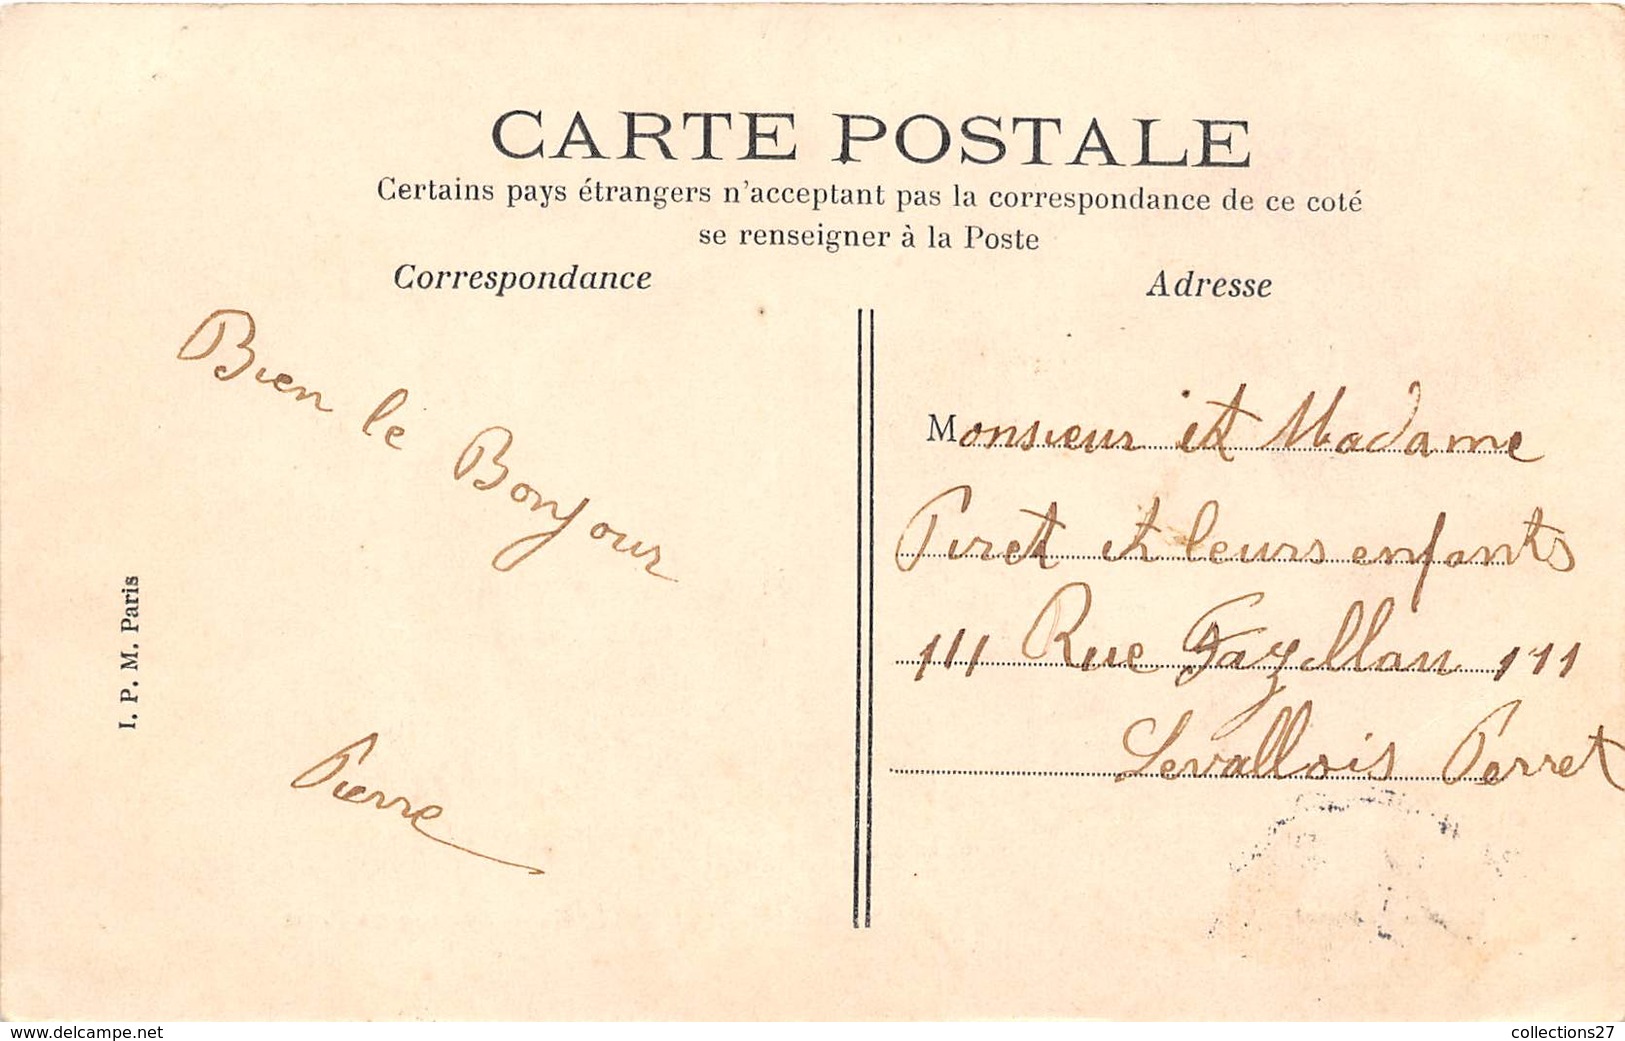 CARTE POSTALE
Certains pays étrangers n'acceptant pas la correspondance de ce coté
se renseigner à la Poste
Correspondance
Adresse
Bien le Bonjour
Pierre
Monsieur et Madame
Piret et leurs enfants
111 Rue Gazillau 111
Levallois Perret
I. P. M. Paris
www.delcampe.net
collections27